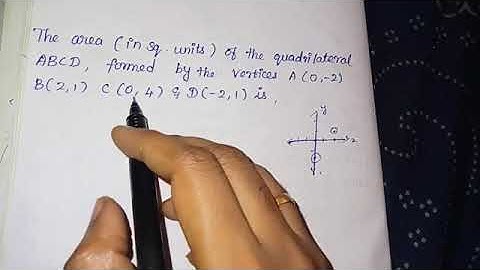 The area (in sq. units) of the quadrilateral
ABCD, formed by the vertices A(0,-2)
B(2,1) C(0,4) & D(-2,1) is,
y